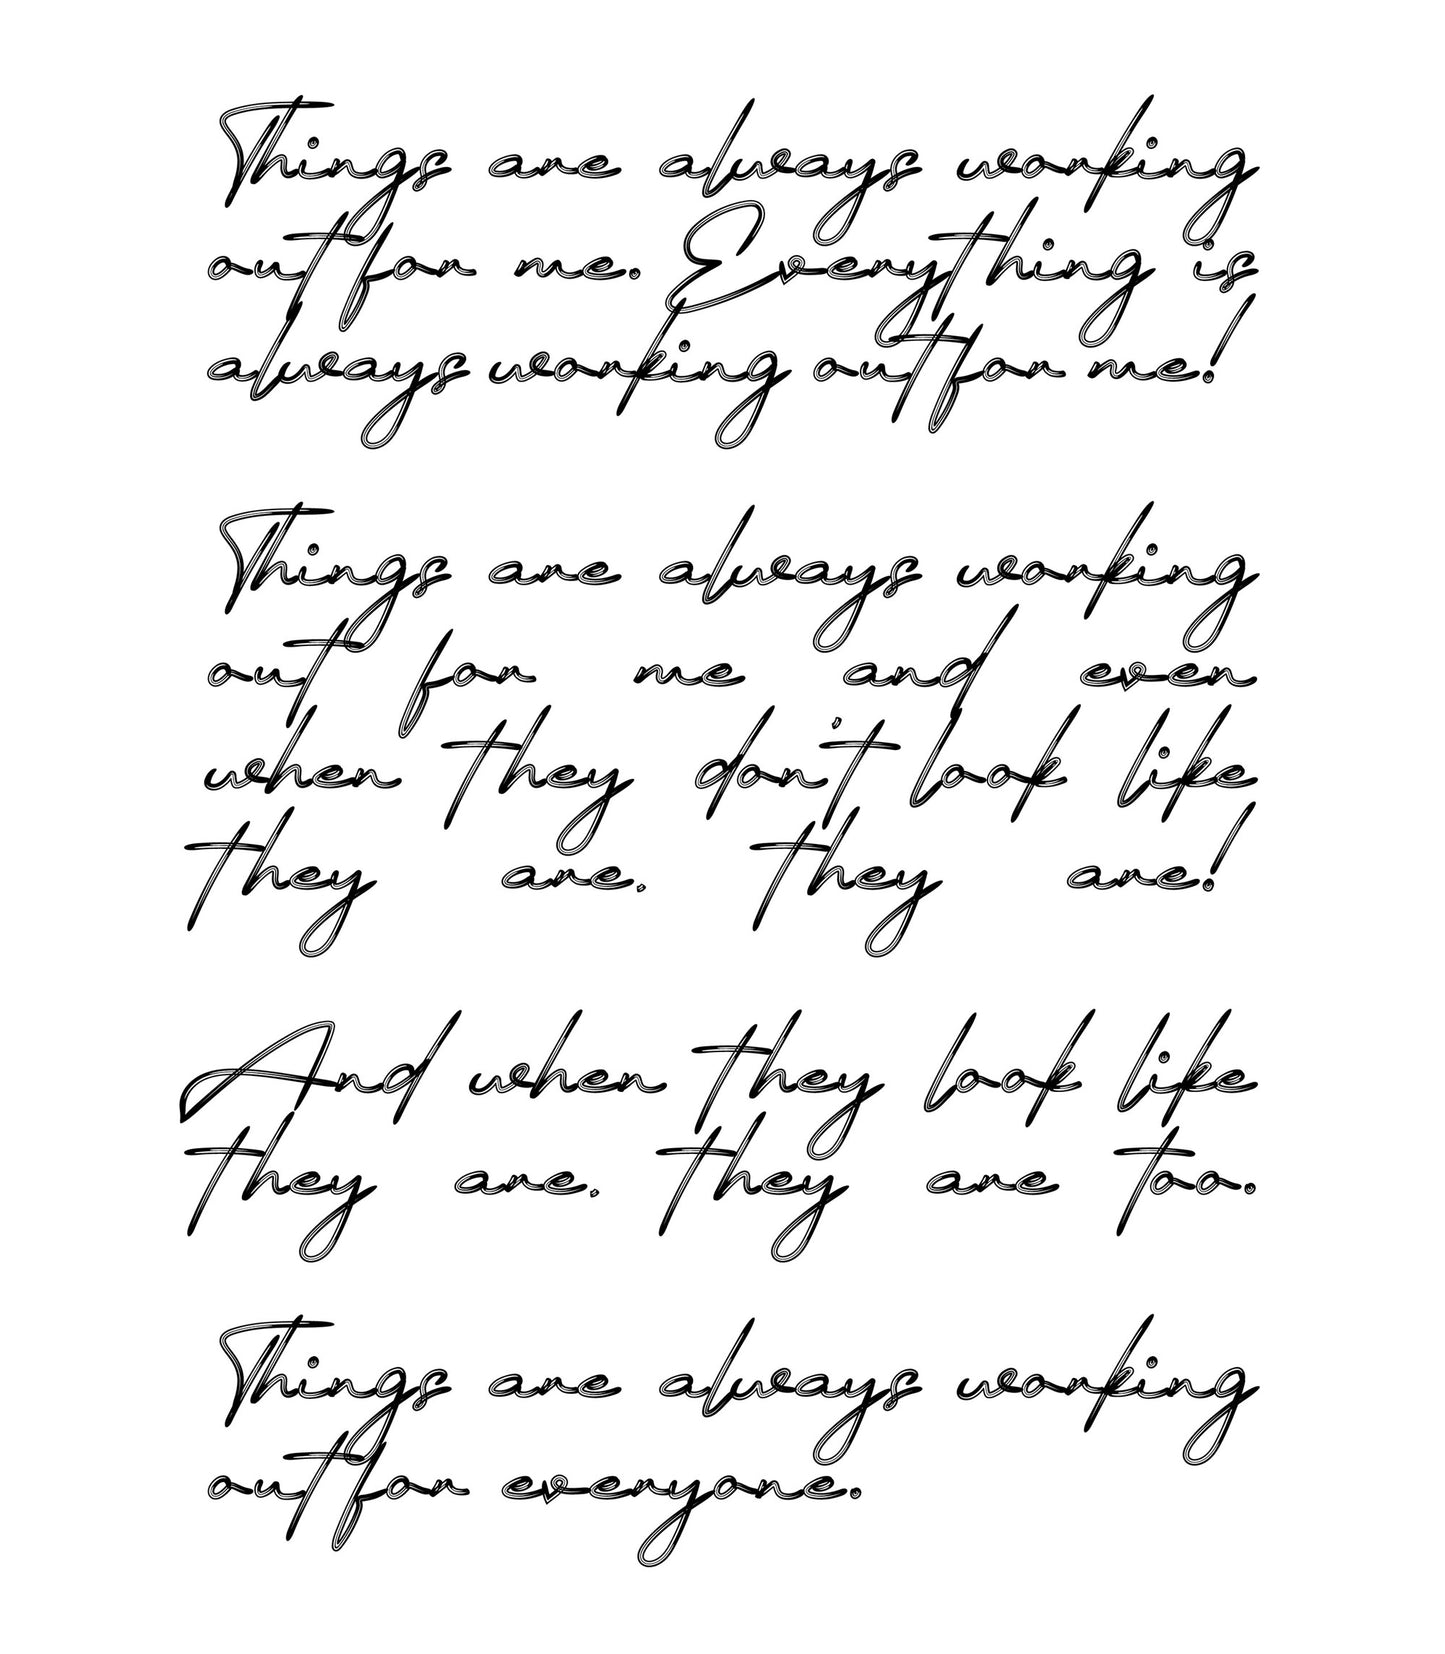 Things are always working
out for me. Everything is
always working out for me!
Things are always working
out for me and even
when they don't look like
they are, they are!
And when they look like
they are, they are too.
Things are always working
out for everyone.